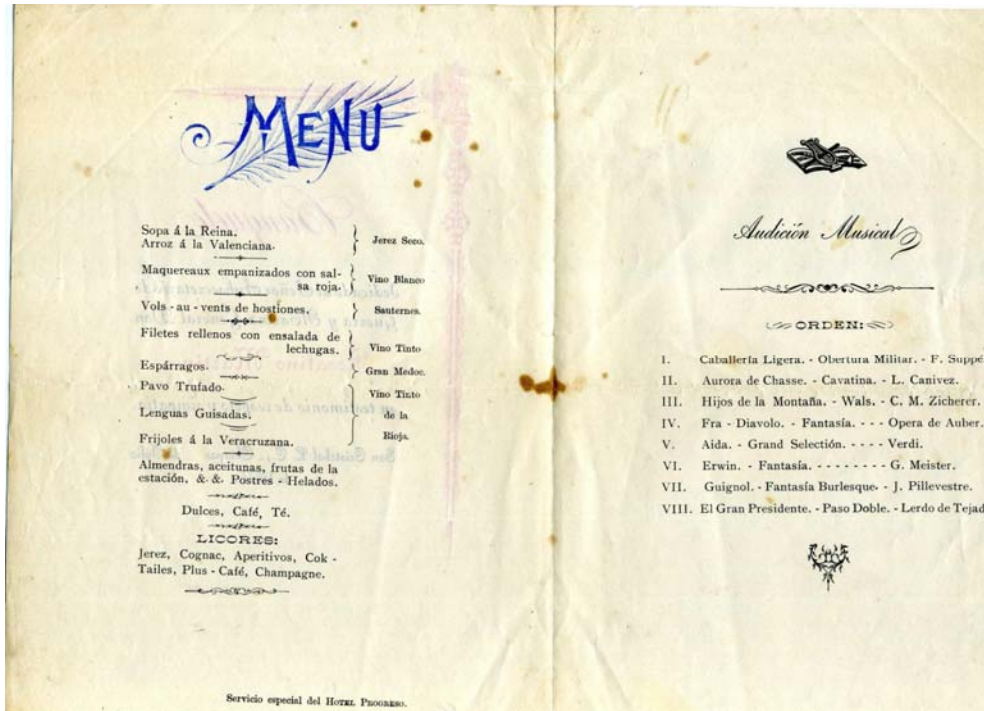 MENU
Sopa á la Reina.
Arroz á la Valenciana.
Jerez Seco.
Maquereaux empanizados con sal-
sa roja.
Vino Blanco
Vols - au - vents de hostiones.
Sauternes.
Filetes rellenos con ensalada de
lechugas.
Vino Tinto
Espárragos.
Gran Medoc.
Pavo Trufado.
Lenguas Guisadas.
Frijoles á la Veracruzana.
Vino Tinto
de la
Rioja.
Almendras, aceitunas, frutas de la
estación, &. &. Postres - Helados.
Dulces, Café, Té.
LICORES:
Jerez, Cognac, Aperitivos, Cok -
Tailes, Plus - Café, Champagne.
Servicio especial del HOTEL PROGRESO.
Audición Musical
ORDEN:
I. Caballería Ligera. - Obertura Militar. - F. Suppé
II. Aurora de Chasse. - Cavatina. - L. Canivez.
III. Hijos de la Montaña. - Wals. - C. M. Zicherer.
IV. Fra - Diavolo. - Fantasía. - - - Opera de Auber.
V. Aida. - Grand Selectión. - - - - - Verdi.
VI. Erwin. - Fantasía. - - - - - - - - G. Meister.
VII. Guignol. - Fantasía Burlesque. - J. Pillevestre.
VIII. El Gran Presidente. - Paso Doble. - Lerdo de Tejad